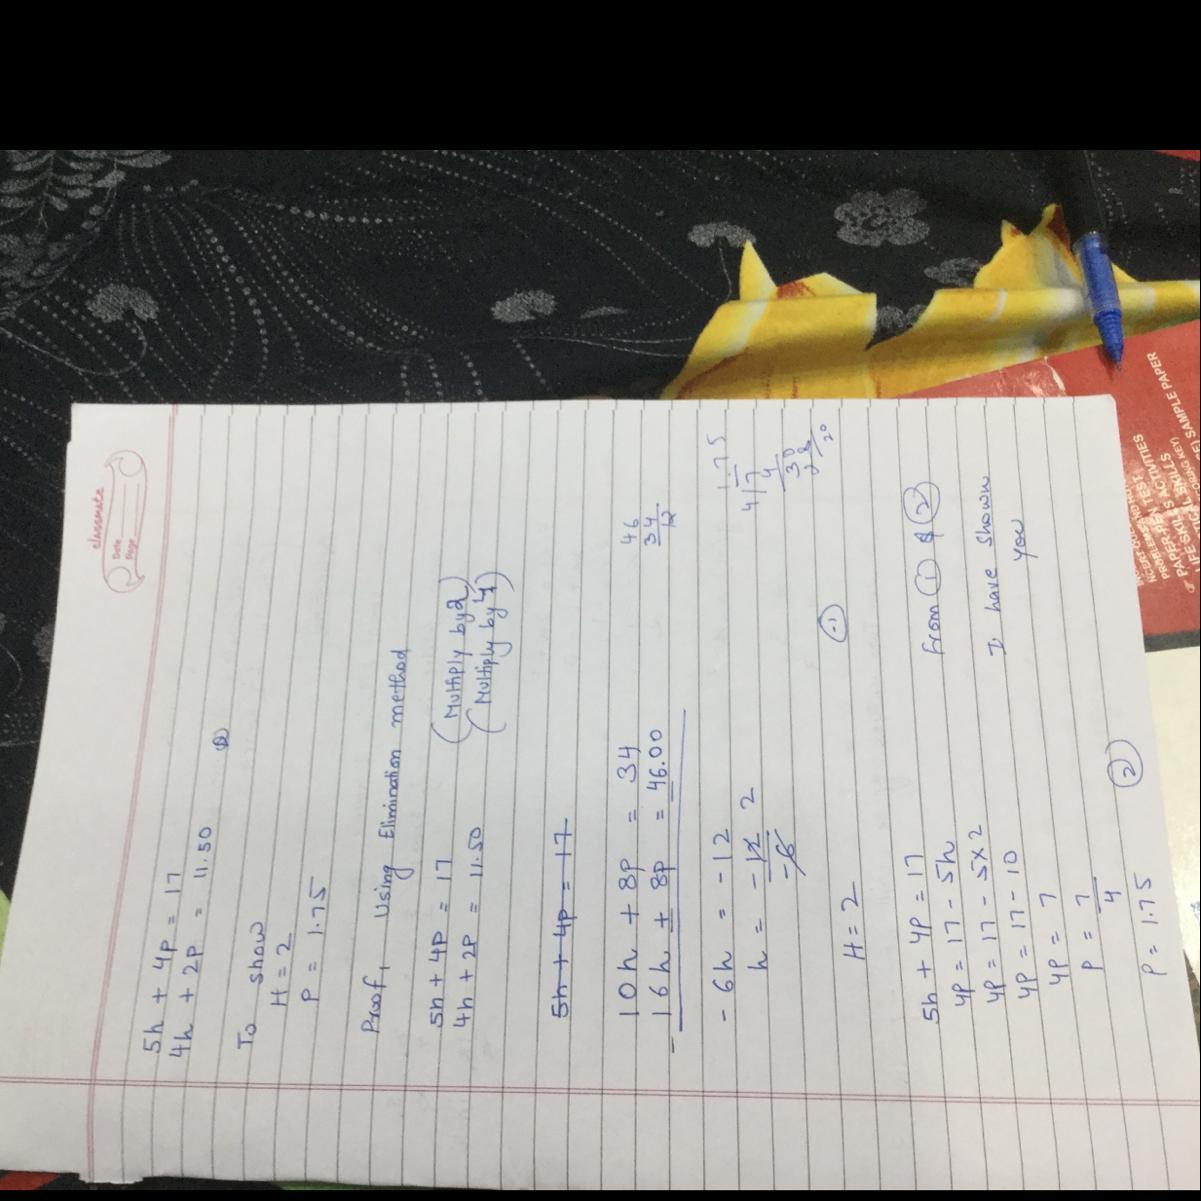 classmate
Date
Page
5h + 4P = 17
4h + 2P = 11.50
To show
H = 2
P = 1.75
Proof, Using Elimination method
5h + 4P = 17 (Multiply by 2)
4h + 2P = 11.50 (Multiply by 4)
5h + 4P = 17
10h + 8P = 34
- 16h ± 8P = 46.00
46
34
12
- 6h = - 12
h = - 12 2
- 6
1.75
4/7
4
30
28
20
H = 2 (1)
5h + 4P = 17
4P = 17 - 5h
4P = 17 - 5x2
4P = 17 - 10
4P = 7
P = 7
4
P = 1.75 (2)
From (1) & (2)
I have shown
you
PROBLEMS TEST
PAPER-PEN ACTIVITIES
LIFE SKILLS
SAMPLE PAPER